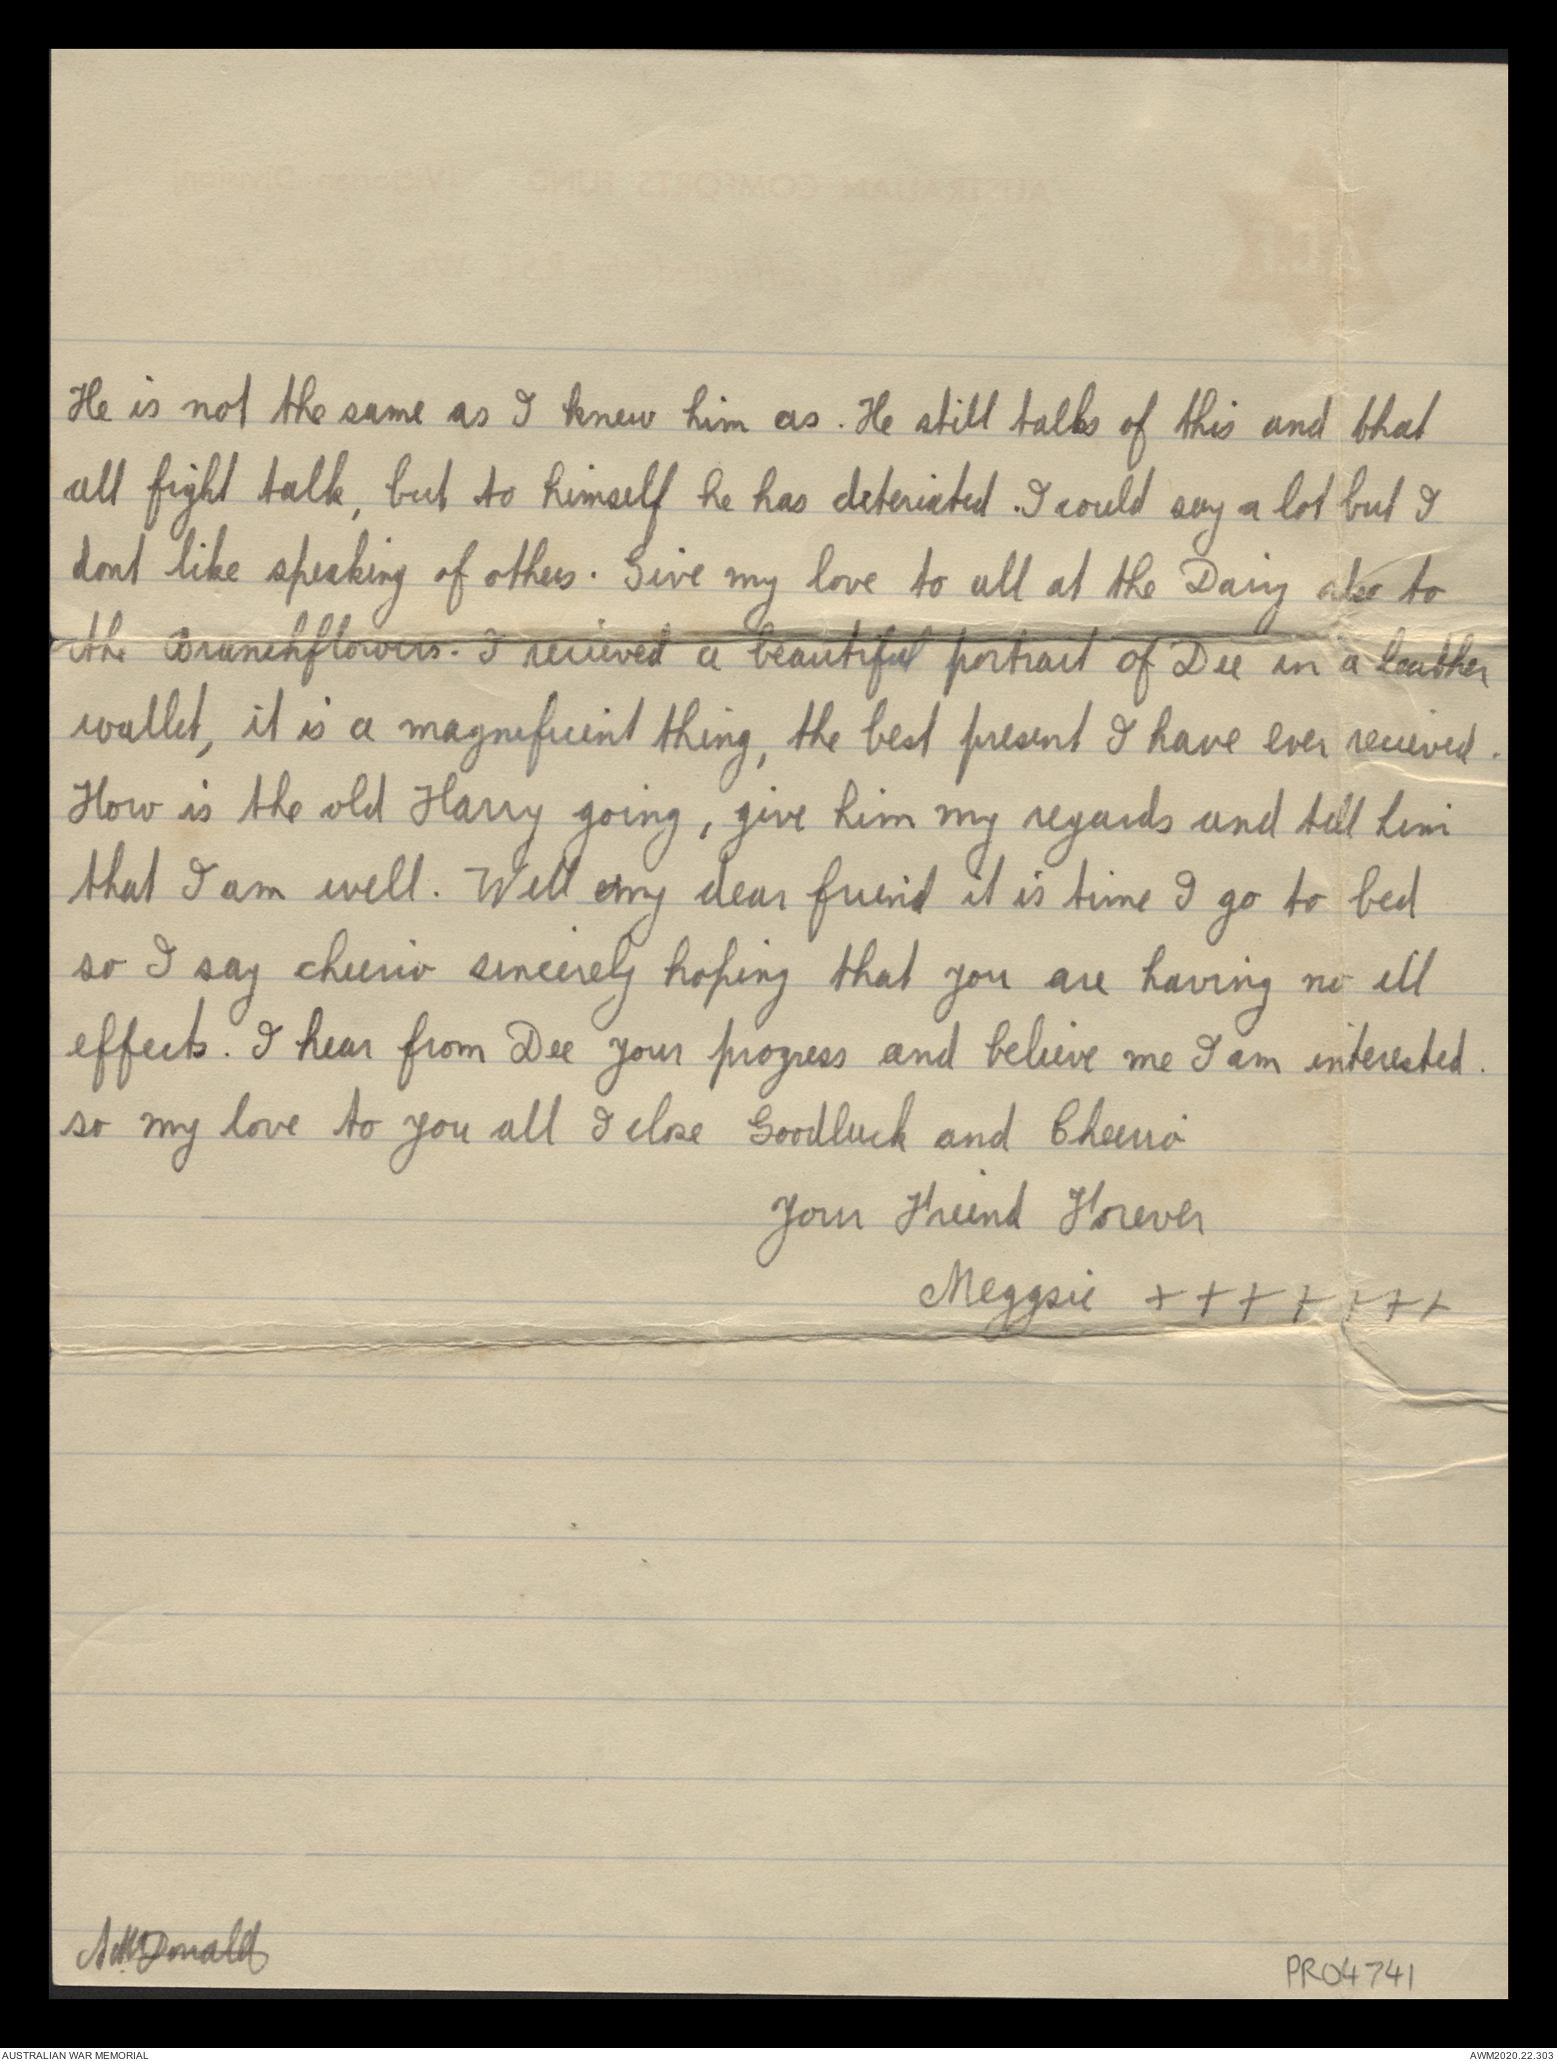 He is not the same as I knew him as. He still talks of this and that
all fight talk, but to himself he has deteriated. I could say a lot but I
dont like speaking of others. Give my love to all at the Dairy also to
the Branchflowers. I recieved a beautiful portrait of Dee in a leather
wallet, it is a magneficient thing, the best present I have ever recieved.
How is the old Harry going, give him my regards and tell him
that I am well. Well my dear friend it is time I go to bed
so I say cheerio sincerely hoping that you are having no ill
effects. I hear from Dee your progress and believe me I am interested.
so my love to you all I close Goodluck and Cheerio
Your Friend Forever
Meggsie + + + + + + +
McDonald
PR04741
AUSTRALIAN WAR MEMORIAL
AWM2020.22.303